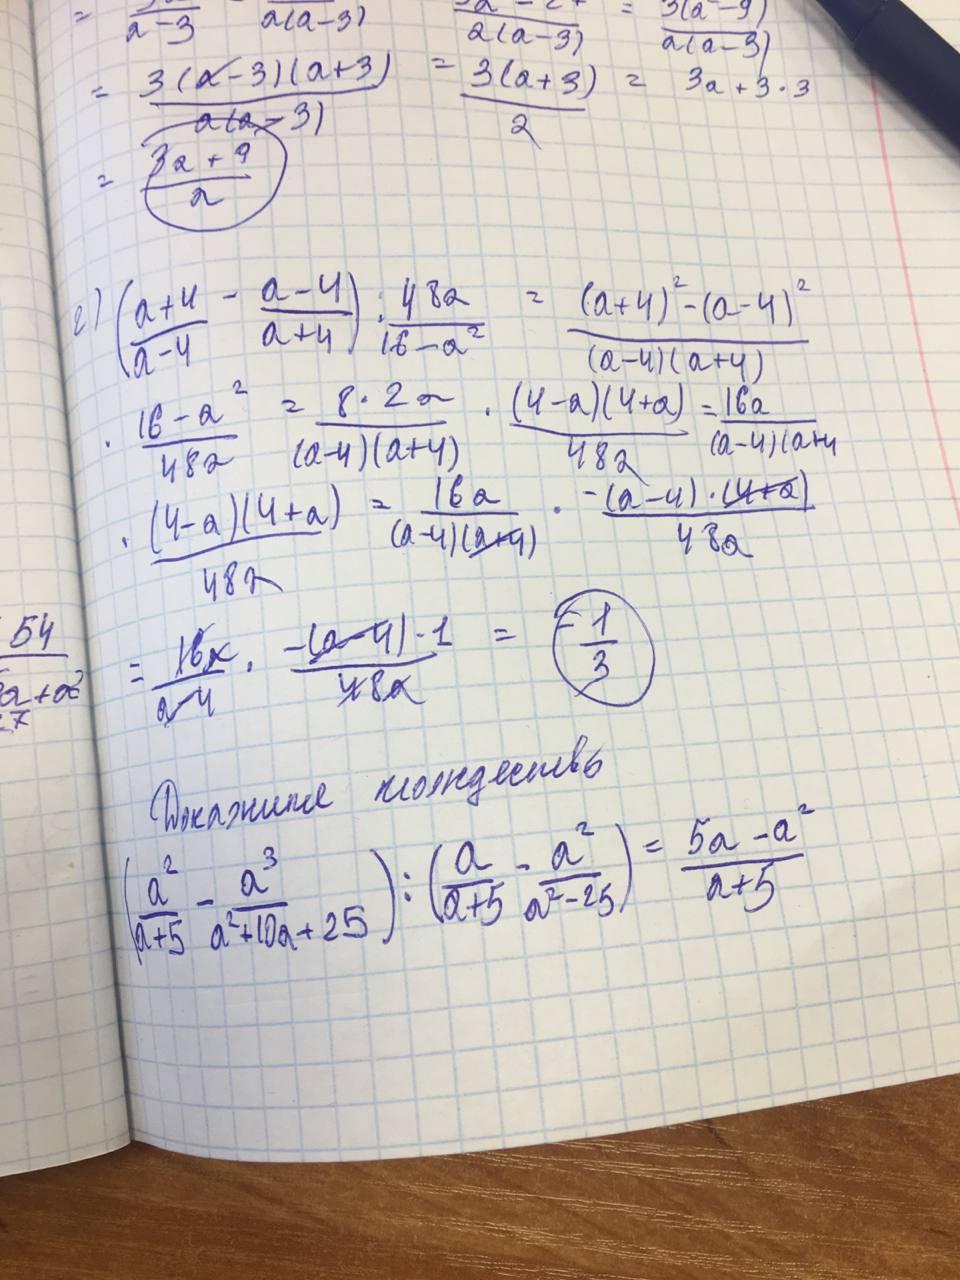 = 3a/(a-3) - /(a(a-3)) = /(a(a-3)) = 3(a²-9)/(a(a-3))
= 3(a-3)(a+3)/(a(a-3)) = 3(a+3)/a = 3a+3·3
= (3a+9)/a
г) ((a+4)/(a-4) - (a-4)/(a+4)) : 48a/(16-a²) = ((a+4)²-(a-4)²)/((a-4)(a+4))
· (16-a²)/48a = 8·2a/((a-4)(a+4)) · (4-a)(4+a)/48a = 16a/((a-4)(a+4
· (4-a)(4+a)/48a = 16a/((a-4)(a+4)) · -(a-4)·(4+a)/48a
54
= 16a/(a-4) · -(a-4)·1/48a = -1/3
Докажите тождество
(a²/(a+5) - a³/(a²+10a+25)) : (a/(a+5) - a²/(a²-25)) = (5a-a²)/(a+5)